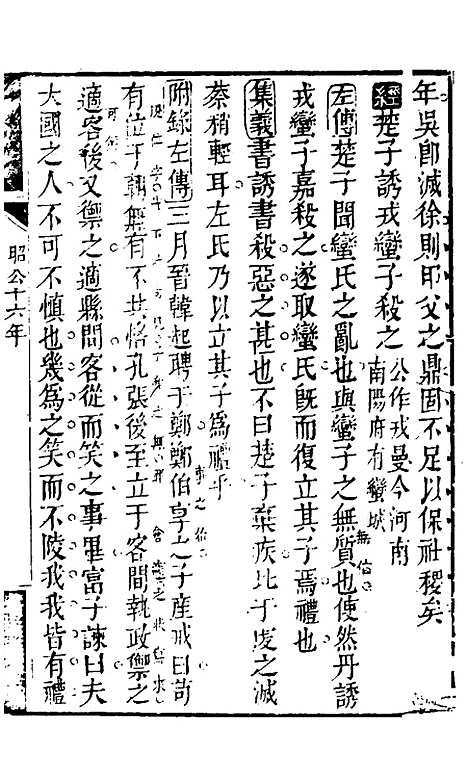 年吳卽滅徐則甲父之鼎固不足以保社稷矣
經楚子誘戎蠻子殺之
公作戎曼今河南
南陽府有蠻城
左傳楚子聞蠻氏之亂也與蠻子之無質也使然丹誘
無信
戎蠻子嘉殺之遂取蠻氏旣而復立其子焉禮也
集義書誘書殺惡之甚也不曰楚子棄疾比于虔之滅
蔡稍輕耳左氏乃以立其子爲禮乎
附錄左傳三月晉韓起聘于鄭鄭伯享之子產戒曰苟
有位于朝無有不共恪孔張後至立于客間執政禦之
適客後又禦之適縣間客從而笑之事畢富子諫曰夫
大國之人不可不慎也幾爲之笑而不陵我我皆有禮
昭公十六年